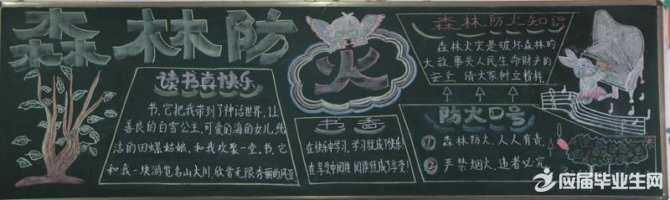 森林防火
读书真快乐
书,它把我带到了神话世界,让
善良的白雪公主,可爱的海的女儿,纯
洁的田螺姑娘,和我欢聚一堂,书它
和我一块游览名山大川,欣赏无限秀丽的风豆
书香
在快乐中学习,学习就成了快乐
在享受中阅读,阅读就成了享受!
森林防火知识
森林火灾是破坏森林的
大敌,事关人民生命财产的
安全,请大家树立榜样
防火口号
① 森林防火,人人有责!
② 严禁烟火,违者必究
应届毕业生网